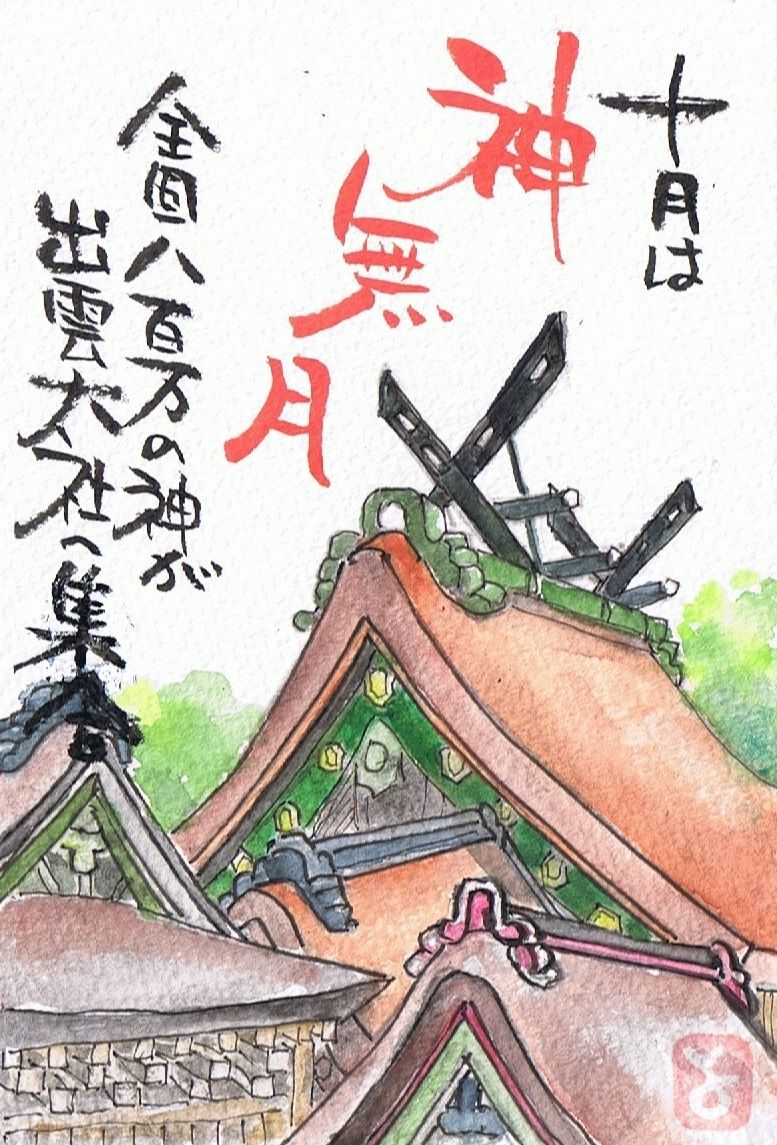 十月は
神無月
全国八百万の神が
出雲大社へ集合